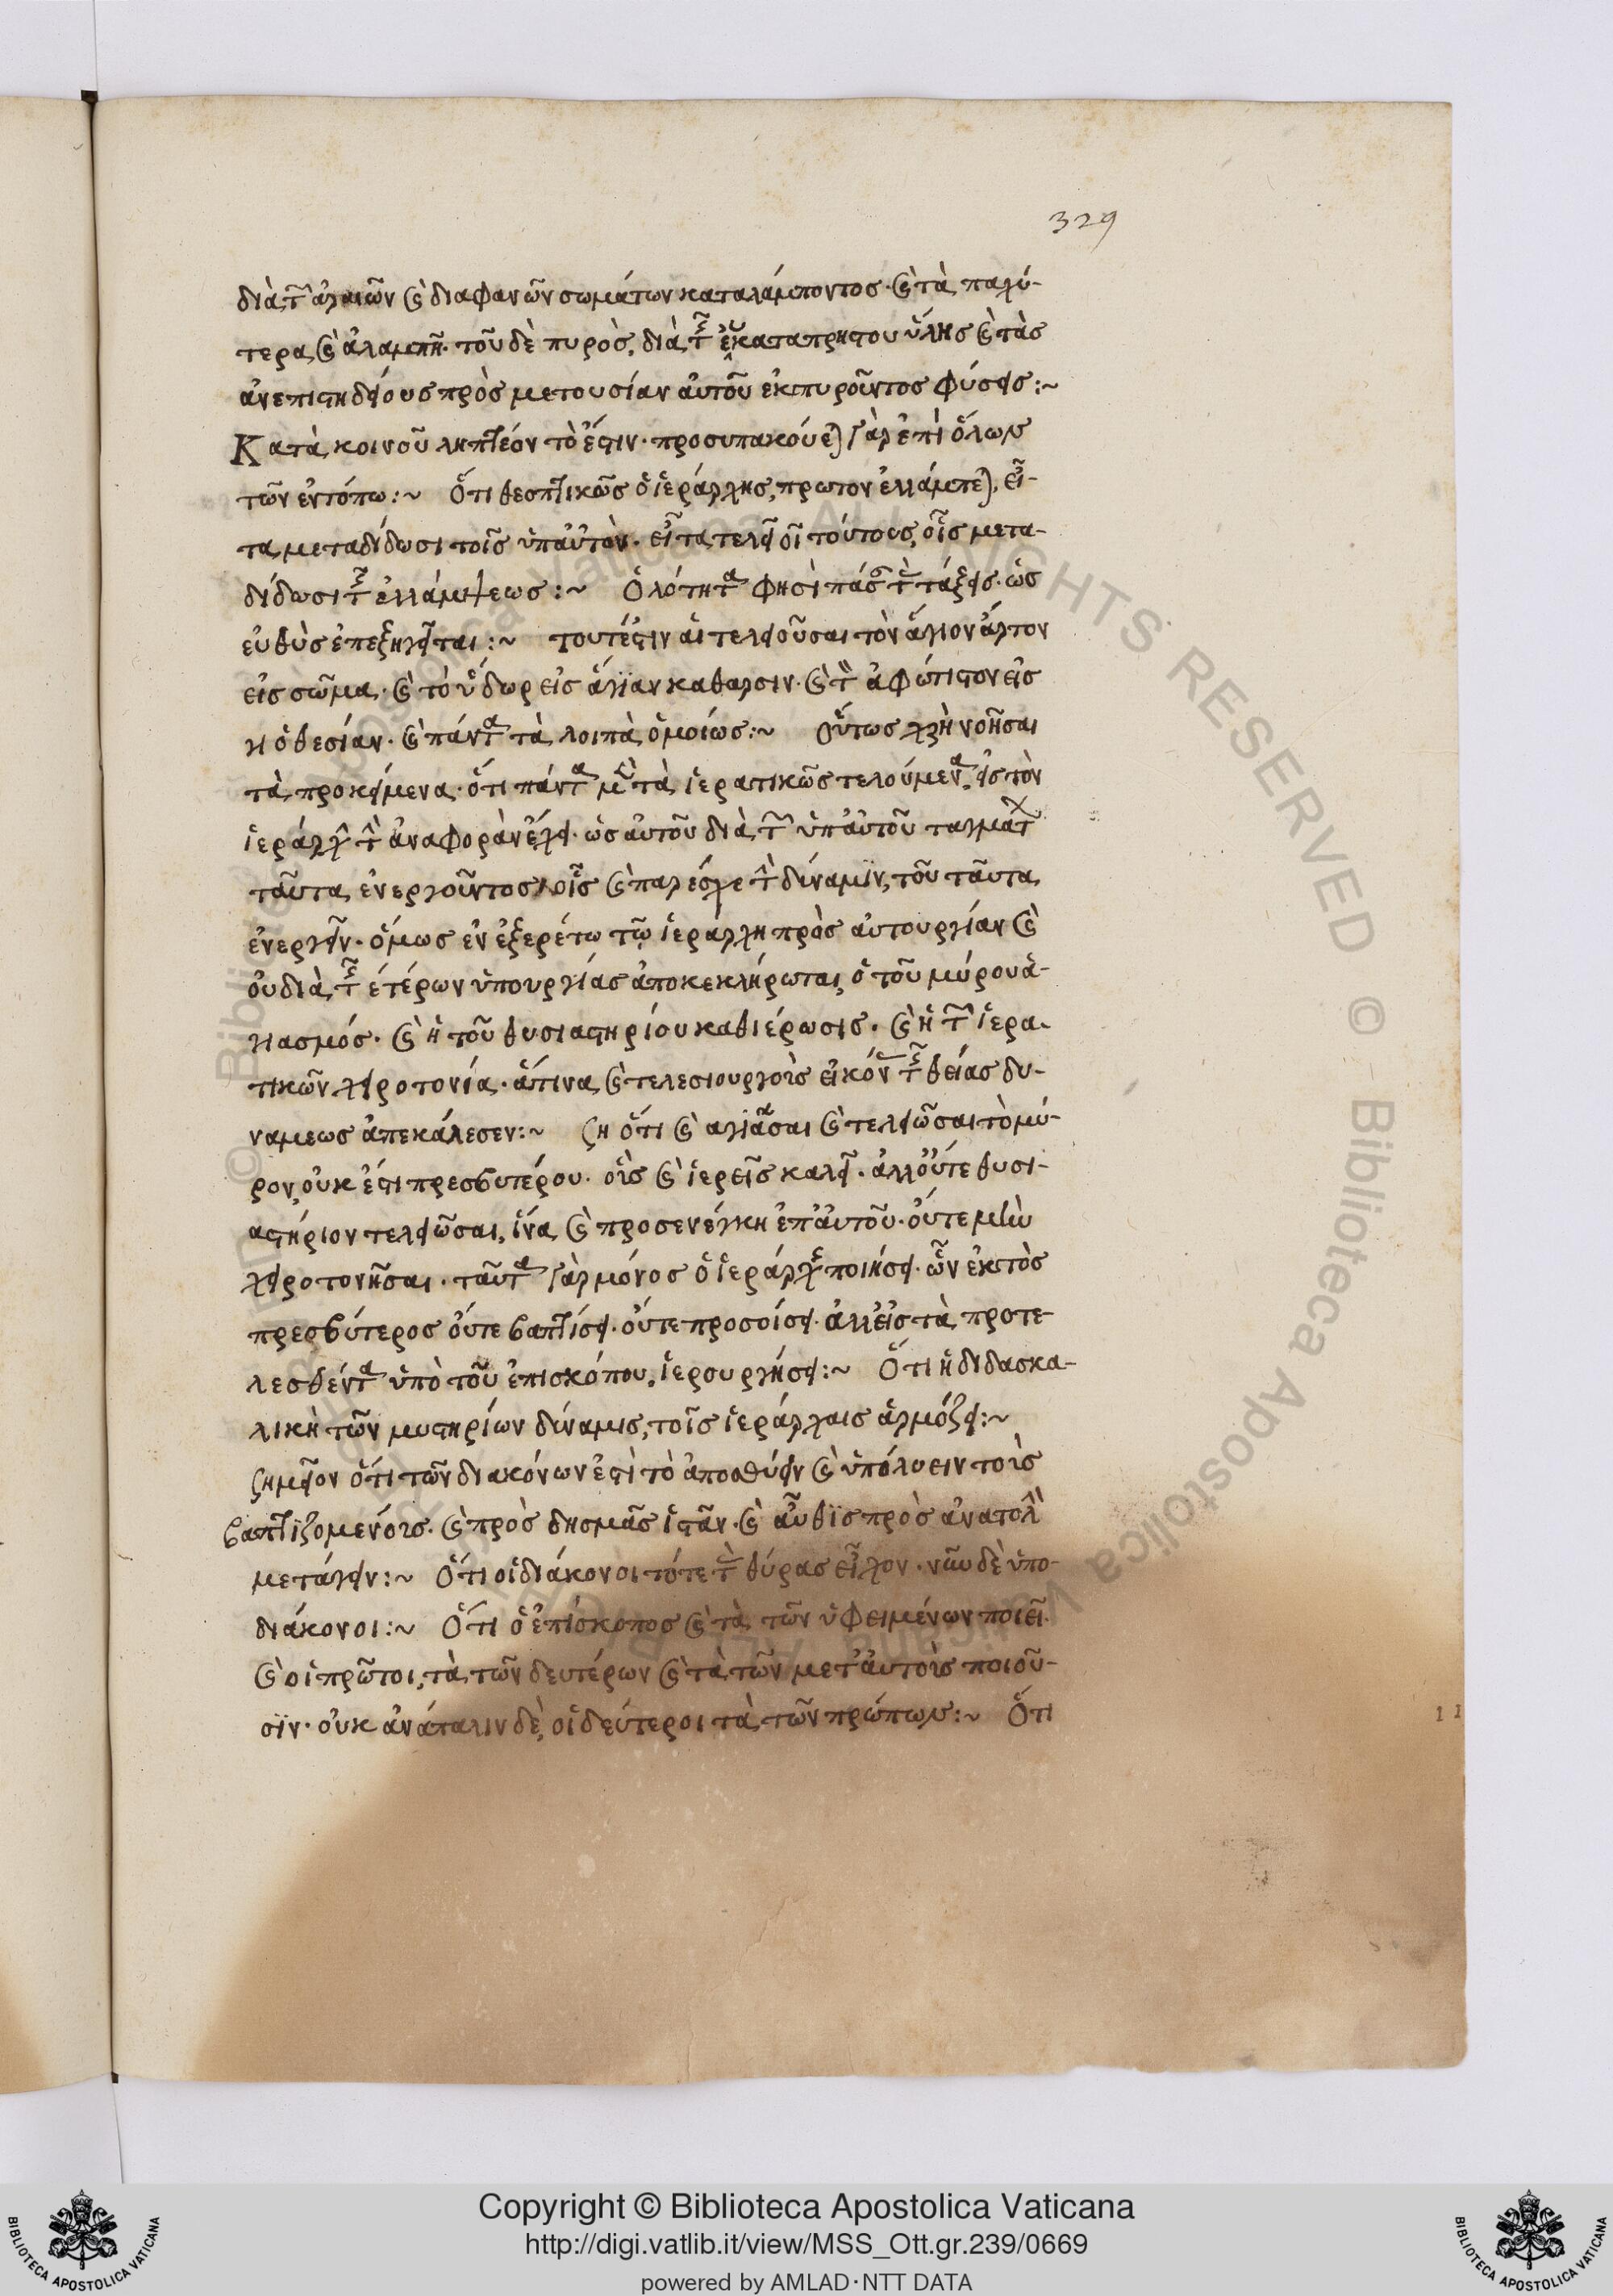 329
διὰ τῶν ἀραιῶν καὶ διαφανῶν σωμάτων καταλάμποντος· καὶ τὰ παχύ-
τερα καὶ ἀλαμπῆ· τοῦ δὲ πυρὸς, διὰ τῆς εὐκαταπρήστου ὕλης καὶ τὰς
ἀνεπιτηδείους πρὸς μετουσίαν αὐτοῦ ἐκπυροῦντος φύσεις :~
Κατὰ κοινοῦ ληπτέον τὸ ἔστιν· προσυπακούεται γὰρ ἐπὶ ὅλων
τῶν ἐντόπω :~ Ὅτι θεοπτικῶς ὁ ἱεράρχης, πρῶτον ἐλλάμπεται, εἶ-
τα μεταδίδωσι τοῖς ὑπ' αὐτὸν· εἶτα τελεῖ τούτους, οἷς μετα-
δίδωσι τῆς ἐλλάμψεως :~ Ὁλότητα φησὶ πάσας τὰς τάξεις· ὡς
εὐθὺς ἐπεξηγεῖται :~ τουτέστιν αἱ τελειοῦσαι τὸν ἅγιον ἄρτον
εἰς σῶμα· καὶ τὸ ὕδωρ εἰς ἁγίαν κάθαρσιν· καὶ τὸν ἀφώτιστον εἰς
υἱοθεσίαν· καὶ πάντα τὰ λοιπὰ ὁμοίως :~ Οὕτως χρὴ νοῆσαι
τὰ προκείμενα· ὅτι πάντα μὲν τὰ ἱερατικῶς τελούμενα, εἰς τὸν
ἱεράρχην τὴν ἀναφορὰν ἔχει· ὡς αὐτοῦ διὰ τῶν ὑπ' αὐτοῦ ταγμάτων
ταῦτα ἐνεργοῦντος, οἷς καὶ παρέσχε τὴν δύναμιν, τοῦ ταῦτα
ἐνεργεῖν· ὅμως ἐν ἐξερέτω τῷ ἱεράρχη πρὸς αὐτουργίαν καὶ
οὐ διὰ τῆς ἑτέρων ὑπουργίας ἀποκεκλήρωται, ὁ τοῦ μύρου ἁ-
γιασμός· καὶ ἡ τοῦ θυσιαστηρίου καθιέρωσις· καὶ ἡ τῶν ἱερα-
τικῶν χειροτονία· ἅτινα καὶ τελεσιουργοὺς εἰκόνας τῆς θείας δυ-
νάμεως ἀπεκάλεσεν :~ ση ὅτι καὶ ἁγιάσαι καὶ τελειῶσαι τὸ μύ-
ρον, οὐκ ἔστι πρεσβυτέρου· οὓς καὶ ἱερεῖς καλεῖ· ἀλλ' οὔτε θυσι-
αστήριον τελειῶσαι, ἵνα καὶ προσενέγκη ἐπ' αὐτοῦ· οὔτε μὴν
χειροτονῆσαι· ταῦτα γὰρ μόνος ὁ ἱεράρχης ποιήσει· ὧν ἐκτὸς
πρεσβύτερος οὔτε βαπτίσει· οὔτε προσοίσει· ἀλλ' εἰς τὰ προτε-
λεσθέντα ὑπὸ τοῦ ἐπισκόπου, ἱερουργήσει :~ Ὅτι ἡ διδασκα-
λικὴ τῶν μυστηρίων δύναμις, τοῖς ἱεράρχαις ἁρμόζει :~
σημεῖον ὅτι τῶν διακόνων ἐστὶ τὸ ἀποδύειν καὶ ὑπόλυειν τοὺς
βαπτιζομένους· καὶ πρὸς δησμὰς ἱστᾶν· καὶ αὖθις πρὸς ἀνατολὴν
μετάγειν :~ Ὅτι οἱ διάκονοι τότε τὰς θύρας εἶχον· νῦν δὲ ὑπο-
διάκονοι :~ Ὅτι ὁ ἐπίσκοπος καὶ τὰ τῶν ὑφειμένων ποιεῖ·
καὶ οἱ πρῶτοι, τὰ τῶν δευτέρων καὶ τὰ τῶν μετ' αὐτοὺς ποιοῦ-
σιν· οὐκ ἀνάπαλιν δὲ, οἱ δεύτεροι τὰ τῶν πρώτων :~ Ὅτι
Copyright © Biblioteca Apostolica Vaticana
http://digi.vatlib.it/view/MSS_Ott.gr.239/0669
powered by AMLAD·NTT DATA